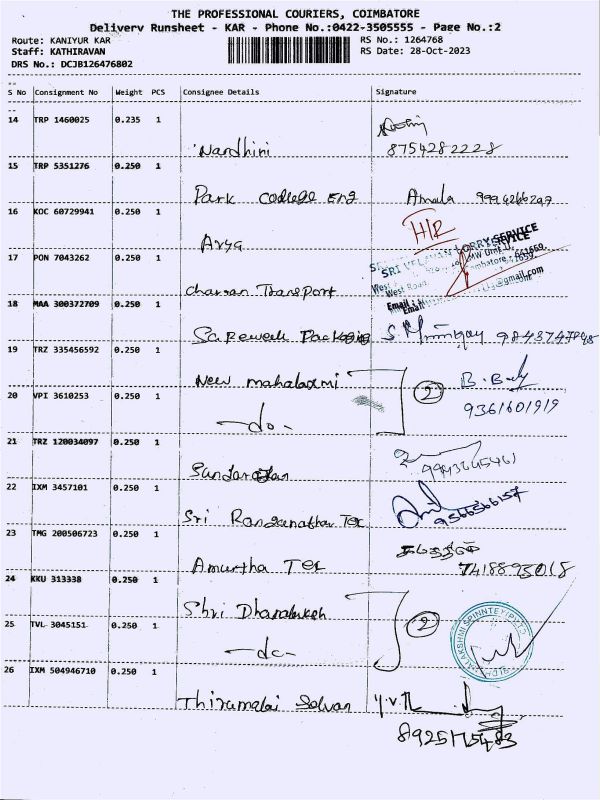 THE PROFESSIONAL COURIERS, COIMBATORE
Delivery Runsheet - KAR - Phone No.:0422-3505555 - Page No.:2
Route: KANIYUR KAR
RS No.: 1264768
Staff: KATHIRAVAN
RS Date: 28-Oct-2023
DRS No.: DCJB126476802
S No Consignment No Weight PCS Consignee Details Signature
14 TRP 1460025 0.235 1
Nandhini 8754282228
15 TRP 5351276 0.250 1
Park College Eng Amala
16 KOC 60729941 0.250 1
Arya H/R
17 PON 7043262 0.250 1
SRI VELAVAN LORRY SERVICE
West Road
Email :
@gmail.com
Charran Transport
18 MAA 300372709 0.250 1
Packaging
19 TRZ 335456592 0.250 1
New mahalaxmi 2
20 VPI 3610253 0.250 1
9361601919
-do-
21 TRZ 120034097 0.250 1
22 IXM 3457101 0.250 1
Sri Ranganathar Tex 9566566157
23 TMG 200506723 0.250 1
Amurtha Tex 7418895018
24 KKU 313338 0.250 1
Shri
25 TVL 3045151 0.250 1
-do- 2
26 IXM 504946710 0.250 1
Thirumalai Selvan